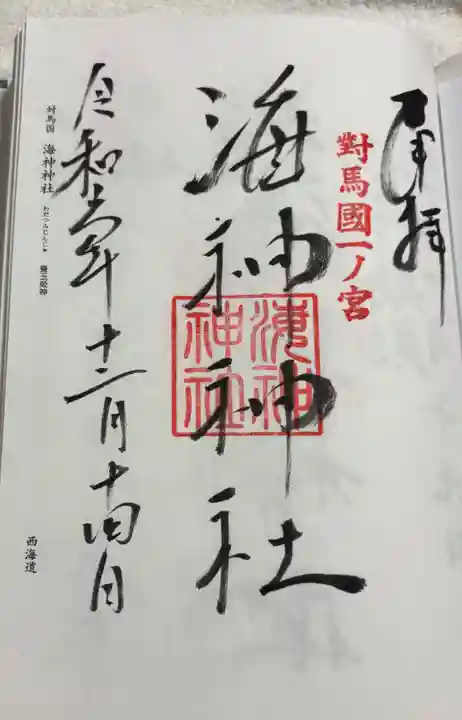 奉拝
對馬國一ノ宮
海神神社
海神
神社
令和六年十二月十四日
対馬国 海神神社 わだつみじんじゃ 豊玉姫命
西海道